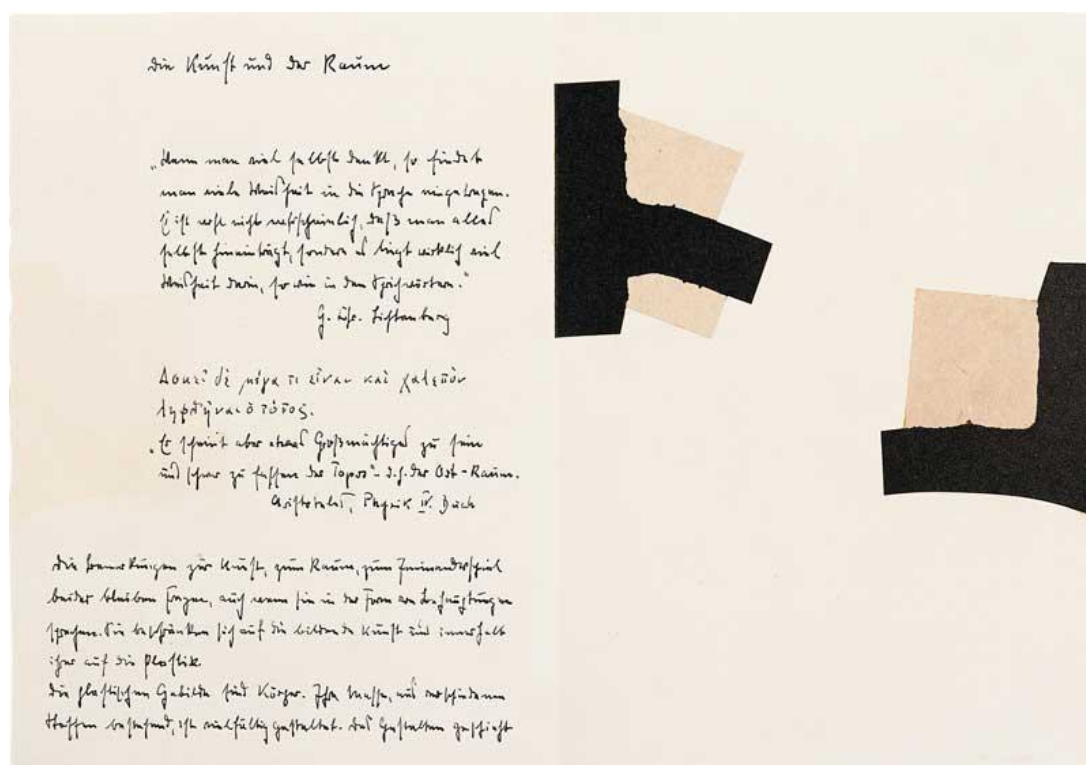 Die Kunst und der Raum
„Wenn man viel selbst denkt, so findet
man viele Weisheit in die Sprache eingetragen.
Es ist wohl nicht wahrscheinlich, daß man alles
selbst hineinträgt, sondern es liegt wirklich viel
Weisheit darin, so wie in den Sprichwörtern.“
G. Chr. Lichtenberg
Δοκεῖ δὲ μέγα τι εἶναι καὶ χαλεπὸν
ληφθῆναι ὁ τόπος.
„Es scheint aber etwas Großmächtiges zu sein
und schwer zu fassen der Topos“ – d.h. der Ort-Raum.
Aristoteles, Physik IV. Buch
Die Bemerkungen zur Kunst, zum Raum, zum Ineinanderspiel
beider bleiben Fragen, auch wenn sie in der Form von Behauptungen
sprechen. Sie beschränken sich auf die bildende Kunst und innerhalb
ihrer auf die Plastik.
Die plastischen Gebilde sind Körper. Ihre Masse, aus verschiedenen
Stoffen bestehend, ist vielfältig gestaltet. Das Gestalten geschieht